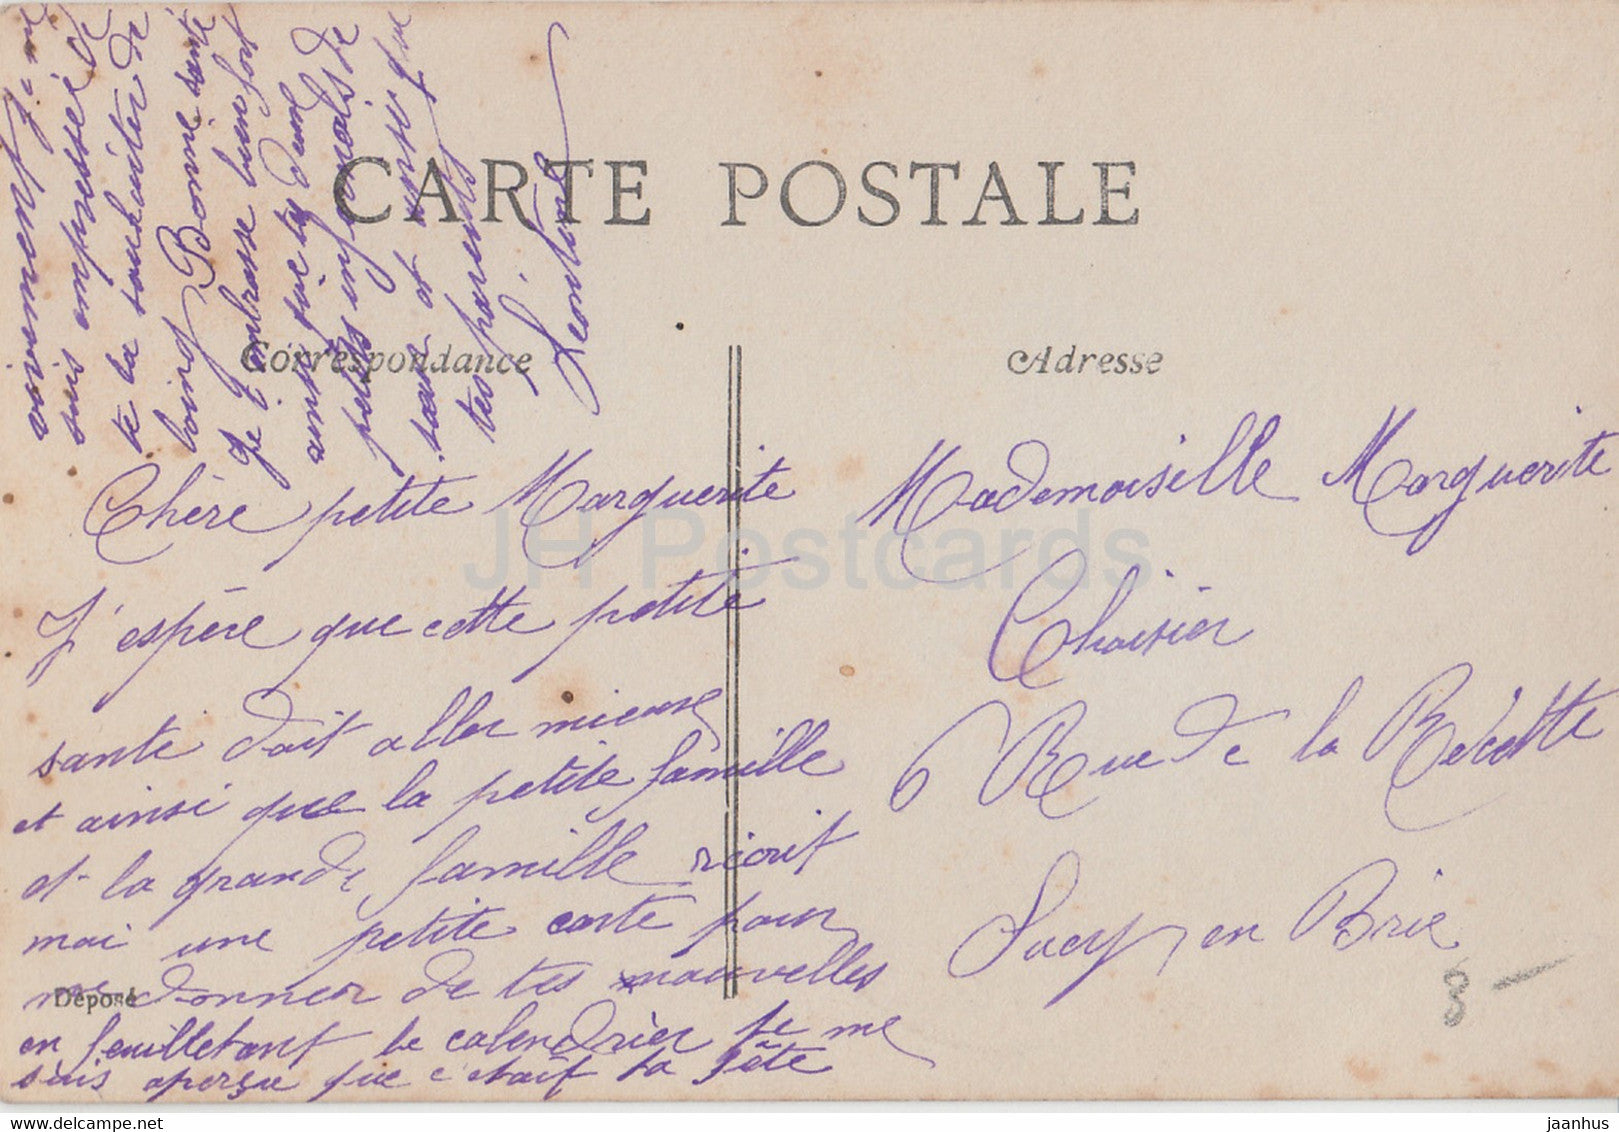 CARTE POSTALE
Correspondance
Adresse
Chère petite Marguerite
J'espère que cette petite
santé doit aller mieux
et ainsi que la petite famille
et la grande famille écrit
moi une petite carte pour
me donner de tes nouvelles
en feuilletant le calendrier je me
suis aperçue que c'était ta fête
je me
suis empressée de
te la souhaiter de
loin Bonne santé
Je t'embrasse bien fort
ainsi que tes deux
petits
sœur et ainsi que
tes parents
Léontine
Mademoiselle Marguerite
Choisier
6 Rue de la Recette
Sucy en Brie
8 -
Déposé
JH Postcards
delcampe.net
jaanhus